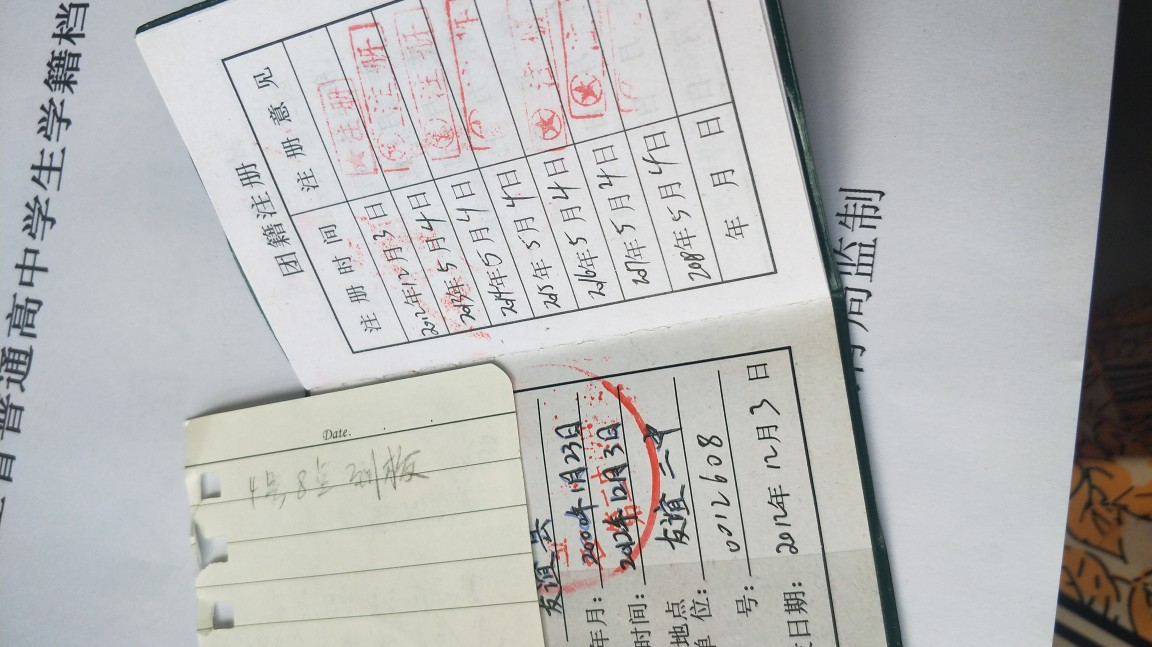 普通高中学生学籍档
局监制
团籍注册
注册时间 注册意见
2012年12月3日
2013年5月4日
2014年5月4日
2015年5月4日
2016年5月4日
2017年5月4日
2018年5月4日
年 月 日
Date.
4号8点
友谊县
年月:2000年11月23日
时间:2012年12月3日
地点
单位:友谊二中
号:0012608
日期:2012年12月3日